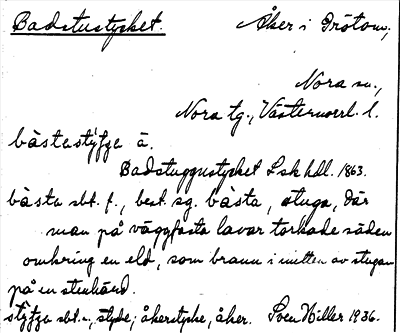 Badstustycket. Åker i Grötom,
Nora sn.,
Nora tg., Västernorrl. l.
båstestýfye å.
Badstuggustycket Lskhdl. 1863.
båsta sbt. f., best. sg. båsta, stuga, där
man på väggfasta lavar torkade säden
omkring en eld, som brann i mitten av stugan
på en stenhänd.
stýfye sbt. n., stycke; åkerstycke, åker. Sven Hiller 1936.